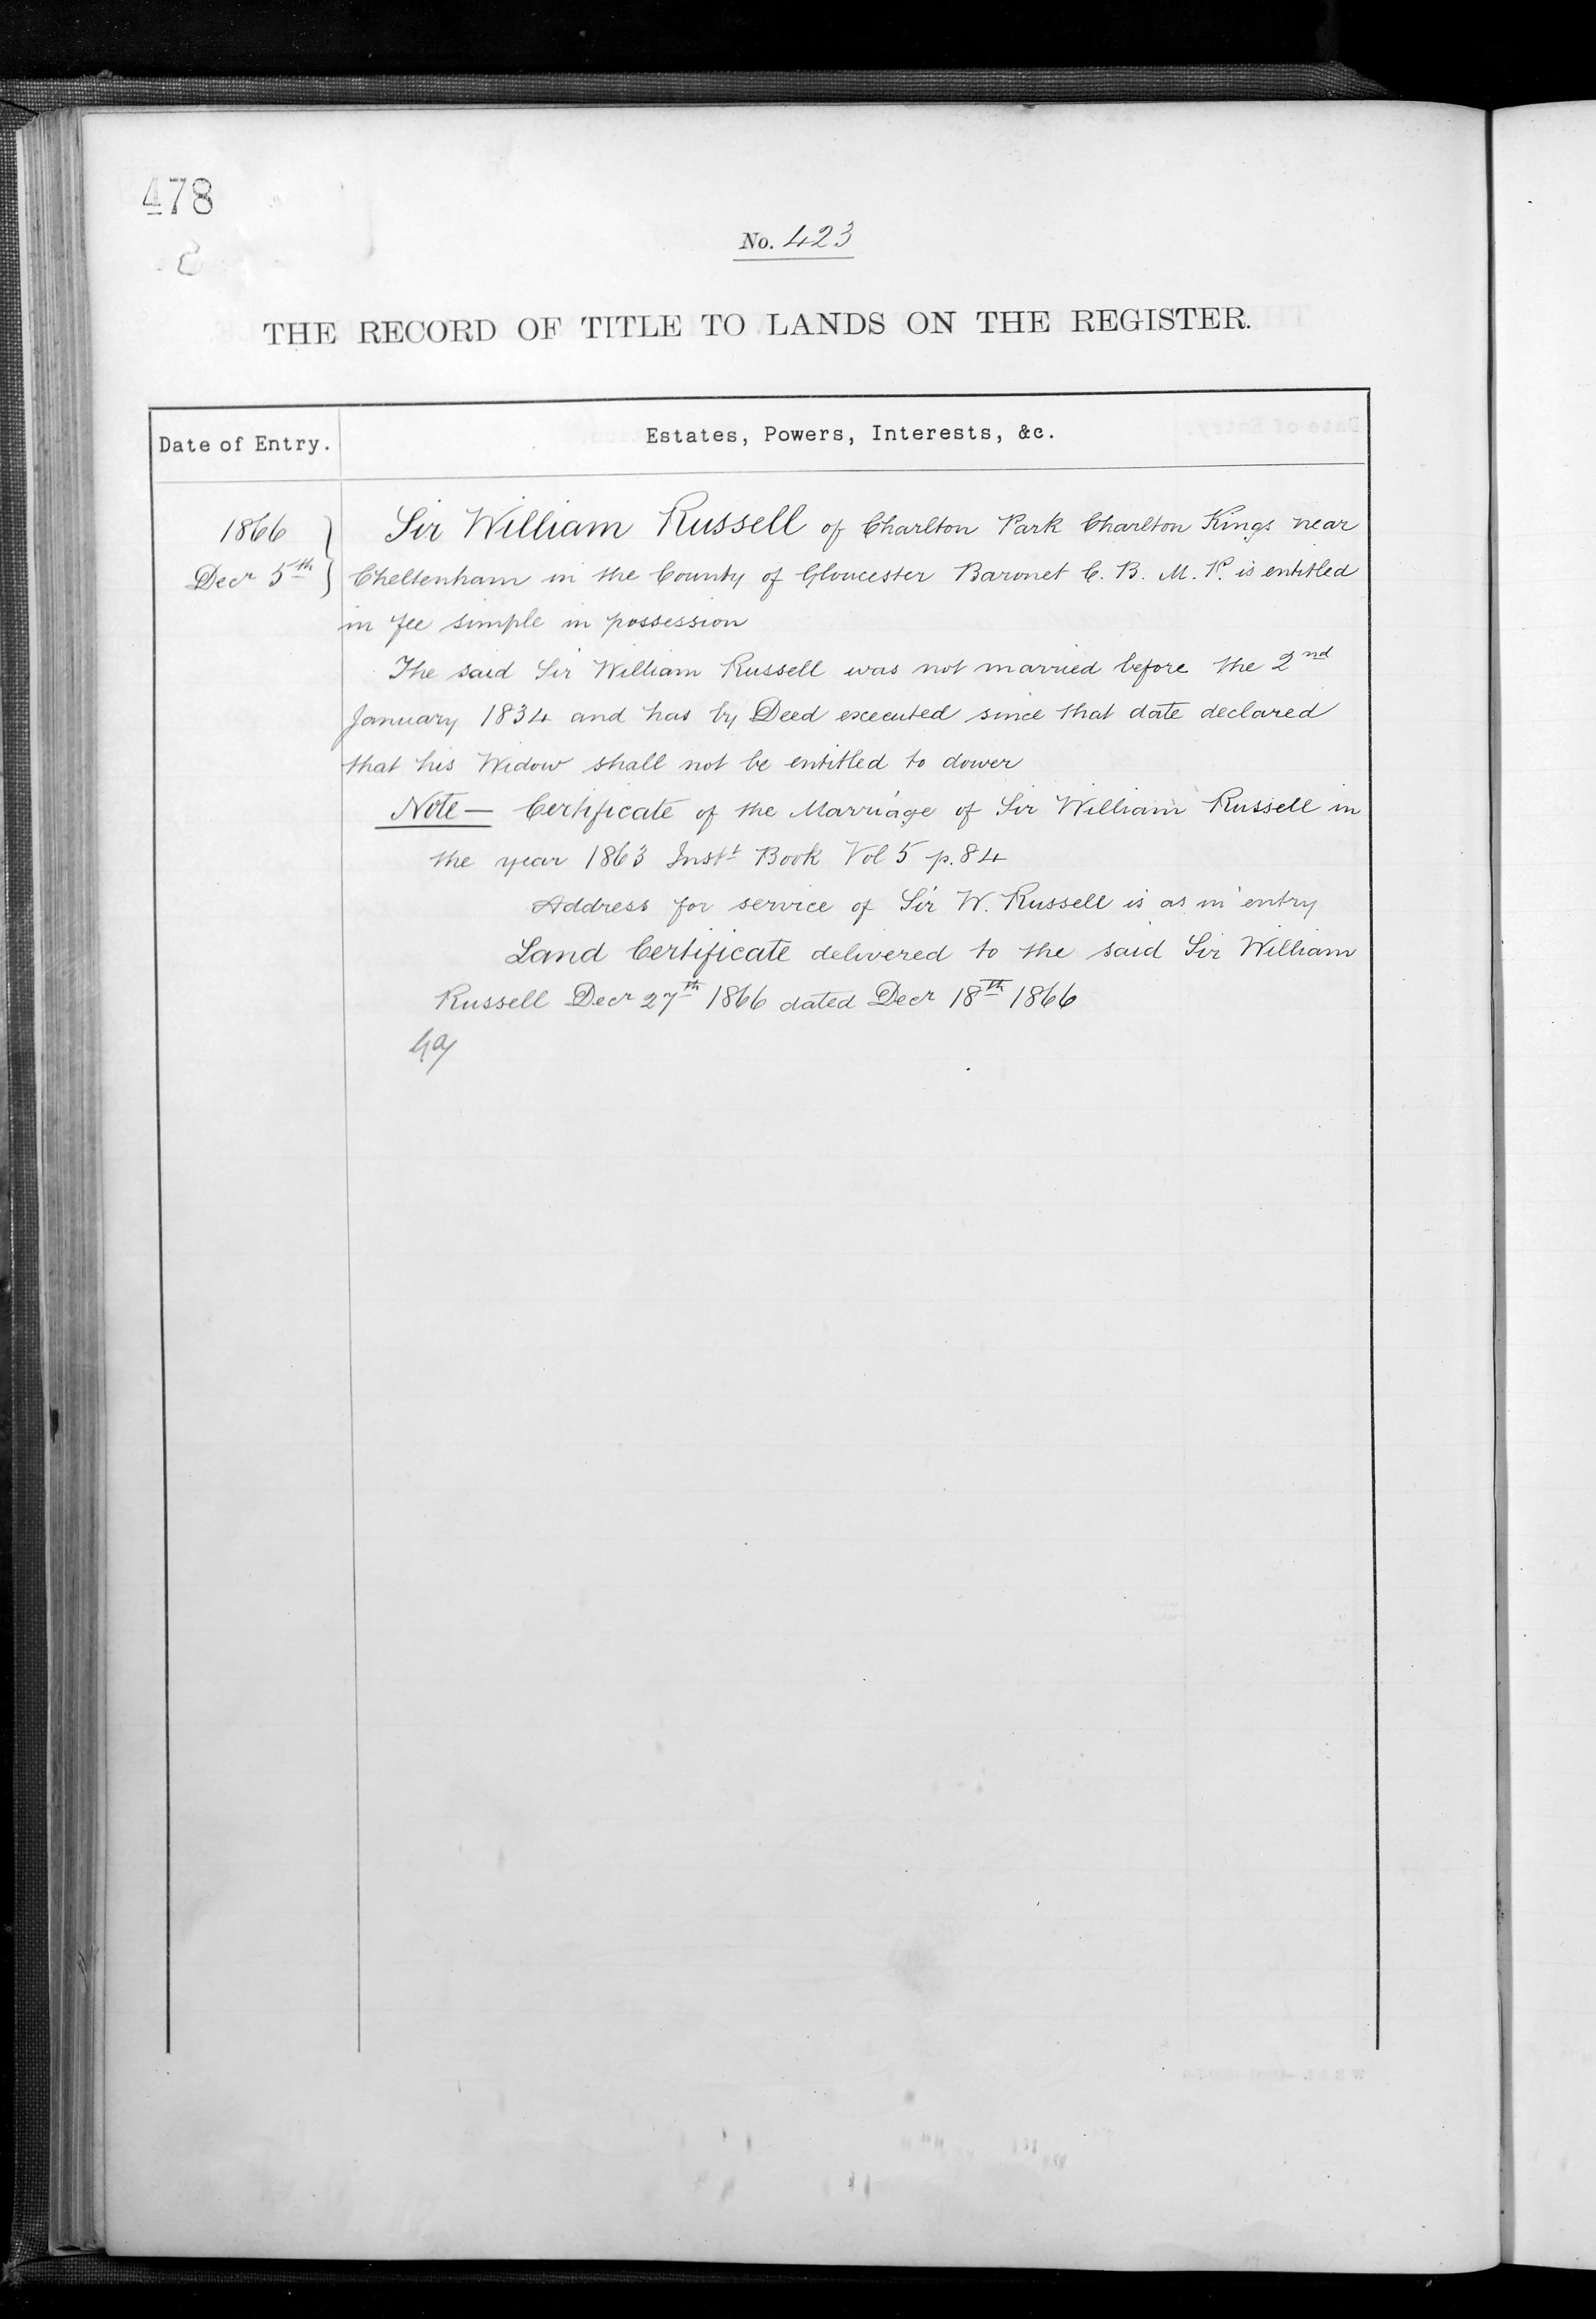 478
No. 423
THE RECORD OF TITLE TO LANDS ON THE REGISTER.
Date of Entry.
Estates, Powers, Interests, &c.
1866
Decr 5th
Sir William Russell of Charlton Park Charlton Kings near
Cheltenham in the County of Gloucester Baronet C. B. M. P. is entitled
in fee simple in possession
The said Sir William Russell was not married before the 2nd
January 1834 and has by Deed executed since that date declared
that his Widow shall not be entitled to dower
Note — Certificate of the Marriage of Sir William Russell in
the year 1863 Inst Book Vol 5 p. 84
Address for service of Sir W. Russell is as in entry
Land Certificate delivered to the said Sir William
Russell Decr 27th 1866 dated Decr 18th 1866